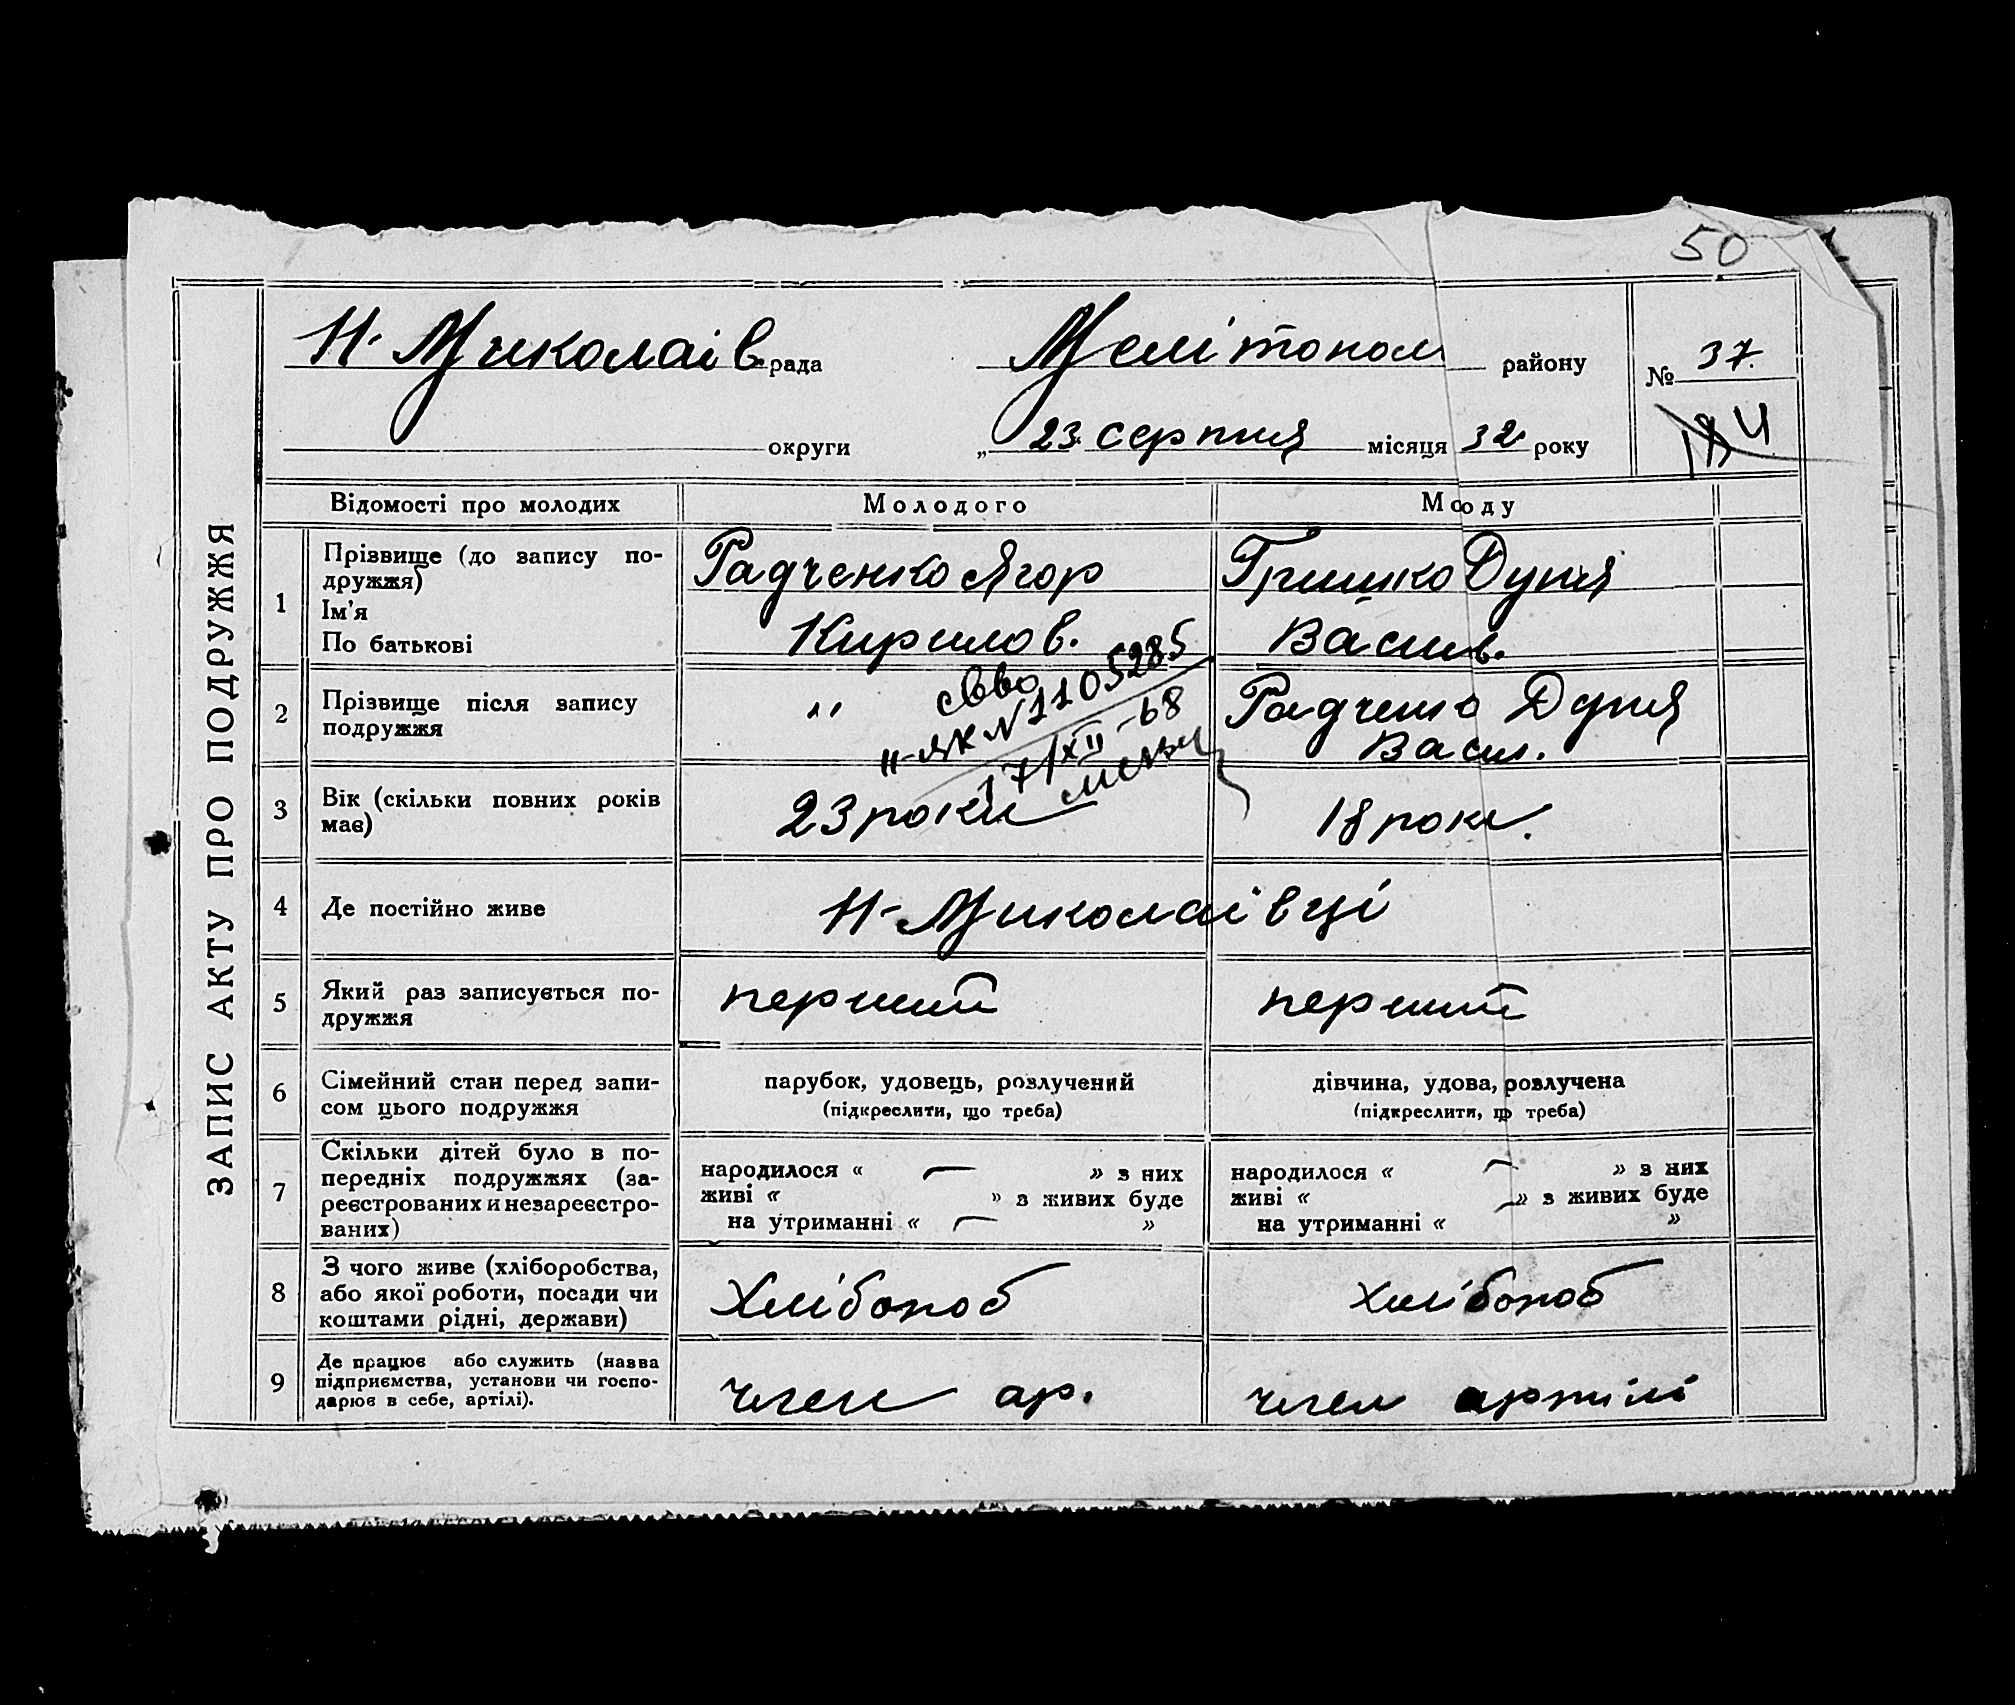 50
ЗАПИС АКТУ ПРО ПОДРУЖЖЯ
Н-Миколаїв рада Мелітопол району № 37.
округи „ 23 серпня місяця 32 року
Відомості про молодих Молодого Молоду
1 Прізвище (до запису по-
дружжя)
Ім'я
По батькові
Радченко Ягор
Кирилов.
Гришко Дуня
Васил.
2 Прізвище після запису
подружжя
"
Радченко Дуня
Васил.
II-ЯК № 1105285
17/XII-68
3 Вік (скільки повних років
має)
23 роки
18 роки.
4 Де постійно живе
Н-Миколаївці
5 Який раз записується по-
дружжя
перший
перший
6 Сімейний стан перед запи-
сом цього подружжя
парубок, удовець, розлучений
(підкреслити, що треба)
дівчина, удова, розлучена
(підкреслити, що треба)
7 Скільки дітей було в по-
передніх подружжях (за-
реєстрованих и незареєстро-
ваних)
народилося « — » з них
живі « » з живих буде
на утриманні « — »
народилося « — » з них
живі « — » з живих буде
на утриманні « »
8 З чого живе (хліборобства,
або якої роботи, посади чи
коштами рідні, держави)
Хлібороб
хлібороб
9 Де працює або служить (назва
підприємства, установи чи госпо-
дарює в себе, артілі).
член ар.
член артілі